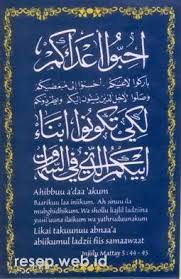 احبوا أعداءكم
باركوا لاعنيكم أحسنوا إلى مبغضيكم
وصلوا لأجل الذين يسيئون إليكم ويطردونكم
لكي تكونوا أبناء
أبيكم الذي في السموات
Ahibbuu a'daa 'akum
Baarikuu laa iniikum, Ah sinuu ila
mubghidhikum. Wa shollu liajlil ladziina
yasii'uuna ilaikum wa yathruduu nakum
Likai takuunuu abnaa'a
abiikumul ladzii fiis samaawaat
Injiilu Mattay 5 : 44 - 45
resep.web.id